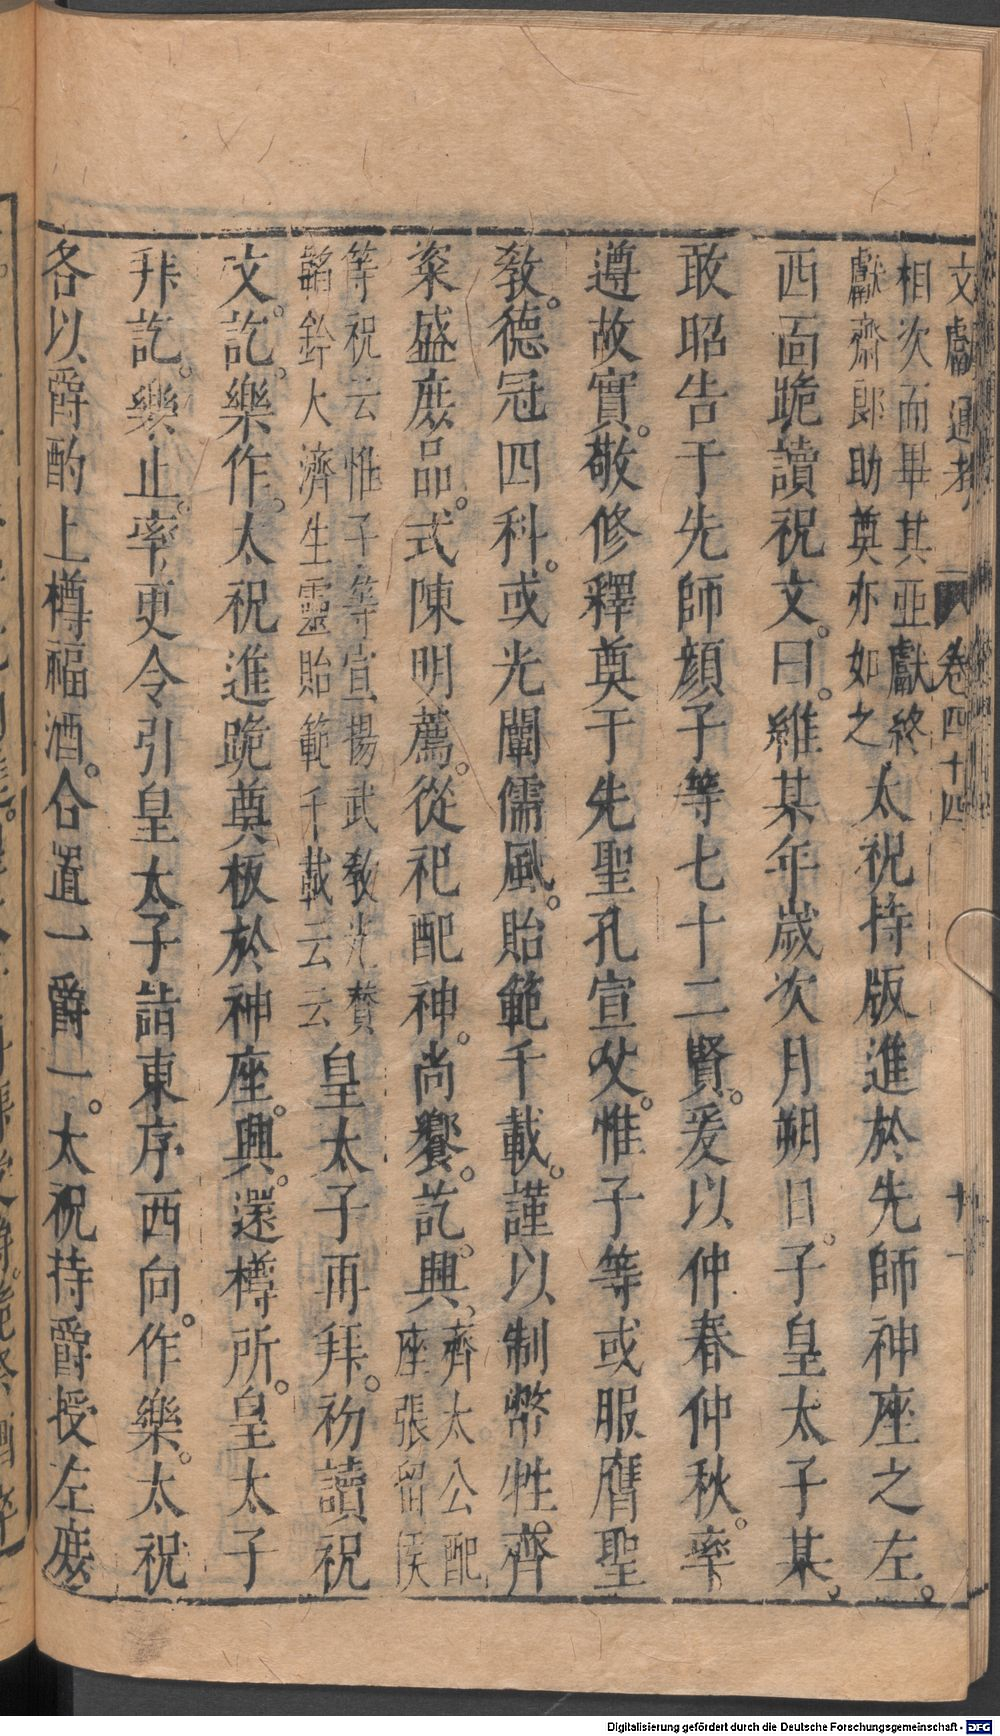 文獻通考　卷四十四　十一
相次而畢其亞獻終
獻齋郎助奠亦如之
太祝持版進於先師神座之左。
西面跪讀祝文。曰。維某年歲次月朔日。子皇太子某。
敢昭告于先師顔子等七十二賢。爰以仲春仲秋。率
遵故實。敬修釋奠于先聖孔宣父。惟子等或服膺聖
教。德冠四科。或光闡儒風。貽範千載。謹以制幣牲齊
粢盛庶品。式陳明薦。從祀配神。尚饗。訖。興。
齊太公配
座張留侯
等祝云惟子等宣揚武教光贊
韜鈐大濟生靈貽範千載云云
皇太子再拜。初讀祝
文。訖。樂作。太祝進跪奠板於神座。興。還樽所。皇太子
拜訖。樂止。率更令引皇太子詣東序西向。作樂。太祝
各以爵酌上樽福酒。合置一爵一。太祝持爵授左庶
Digitalisierung gefördert durch die Deutsche Forschungsgemeinschaft - DFG